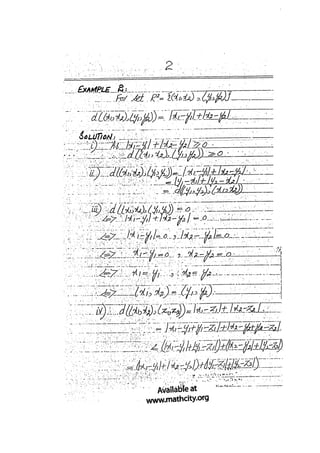 2
EXAMPLE 2:
For Set R² = {(x₁,x₂), (y₁,y₂)}
d((x₁,x₂),(y₁,y₂)) = |x₁-y₁|+|x₂-y₂|
SOLUTION:
i) As |x₁-y₁|+|x₂-y₂| ≥ 0
∴ d((x₁,x₂),(y₁,y₂)) ≥ 0
ii) d((x₁,x₂),(y₁,y₂)) = |x₁-y₁|+|x₂-y₂|
= |y₁-x₁|+|y₂-x₂|
= d((y₁,y₂),(x₁,x₂))
iii) d((x₁,x₂),(y₁,y₂)) = 0
<=> |x₁-y₁|+|x₂-y₂| = 0
<=> |x₁-y₁|=0 , |x₂-y₂|=0
<=> x₁-y₁=0 , x₂-y₂=0
<=> x₁=y₁ , x₂=y₂
<=> (x₁,x₂) = (y₁,y₂)
iv) d((x₁,x₂),(z₁,z₂)) = |x₁-z₁|+|x₂-z₂|
= |x₁-y₁+y₁-z₁|+|x₂-y₂+y₂-z₂|
≤ (|x₁-y₁|+|y₁-z₁|)+(|x₂-y₂|+|y₂-z₂|)
= (|x₁-y₁|+|x₂-y₂|)+(|y₁-z₁|+|y₂-z₂|)
Available at
www.mathcity.org